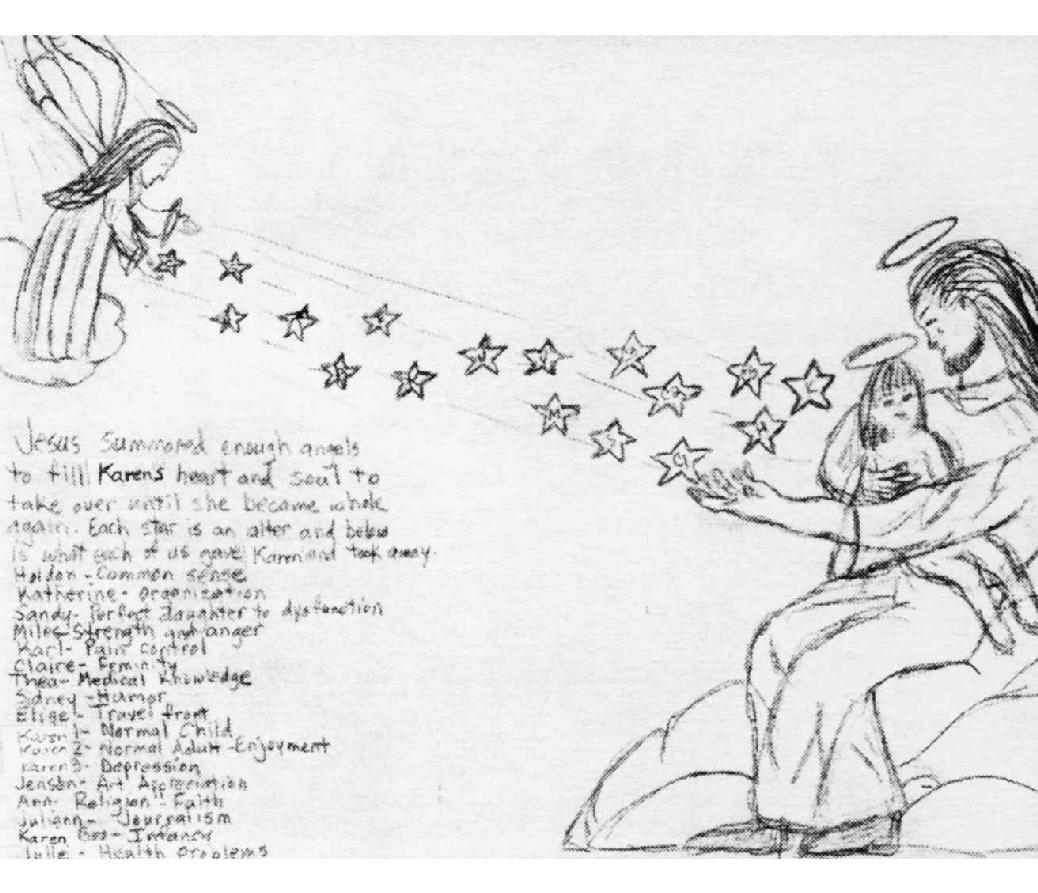 Jesus Summoned enough angels
to fill Karens heart and soul to
take over until she became whole
again. Each star is an alter and below
is what each of us gave Karen and took away.
Holdon - Common sense
Katherine - organization
Sandy - Perfect daughter to dysfunction
Miles - Strength and anger
Karl - Pain control
Claire - Feminity
Thea - Medical Knowledge
Sidney - Humor
Elise - Travel front
Karen 1 - Normal Child
Karen 2 - Normal Adult - Enjoyment
Karen 3 - Depression
Jensen - Art Appreciation
Ann - Religion - Faith
Juliann - Journalism
Karen Boo - Infancy
Julie - Health problems